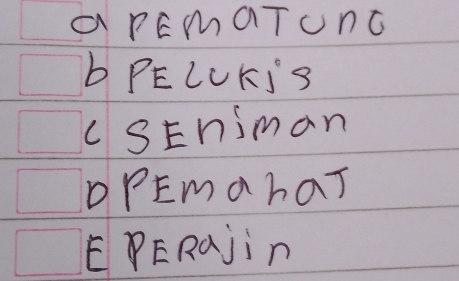 a PEMATUNG
b PELUKIS
c SENIMAN
D PEMAHAT
E PERAJIN